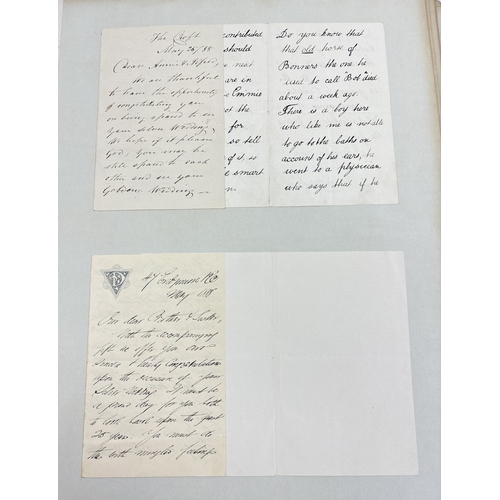 The Croft
May 24/88
Dear Annie & Alfred,
We are thankful
to have the opportunity
of congratulating you
on being spared to see
your Silver Wedding.
We hope if it please
God, you may be
still spared to each
other and see your
Golden Wedding
contributed
should
next
are in
Emmie
ot the
for
so tell
of it, is
e smart
m.
Do you know that
that old horse of
Bonners the one he
used to call "Bob" died
about a week ago.
There is a boy here
who like me is not able
to go to the baths on
account of his ears, he
went to a physician
who says that if he
May
Our dear Brother & Sister,
With the accompanying
gift we offer you our
sincere & hearty Congratulations
upon the occasion of your
Silver Wedding. It must be
a proud day for you both
to look back upon the past
25 years. You must do
the with mingled feelings